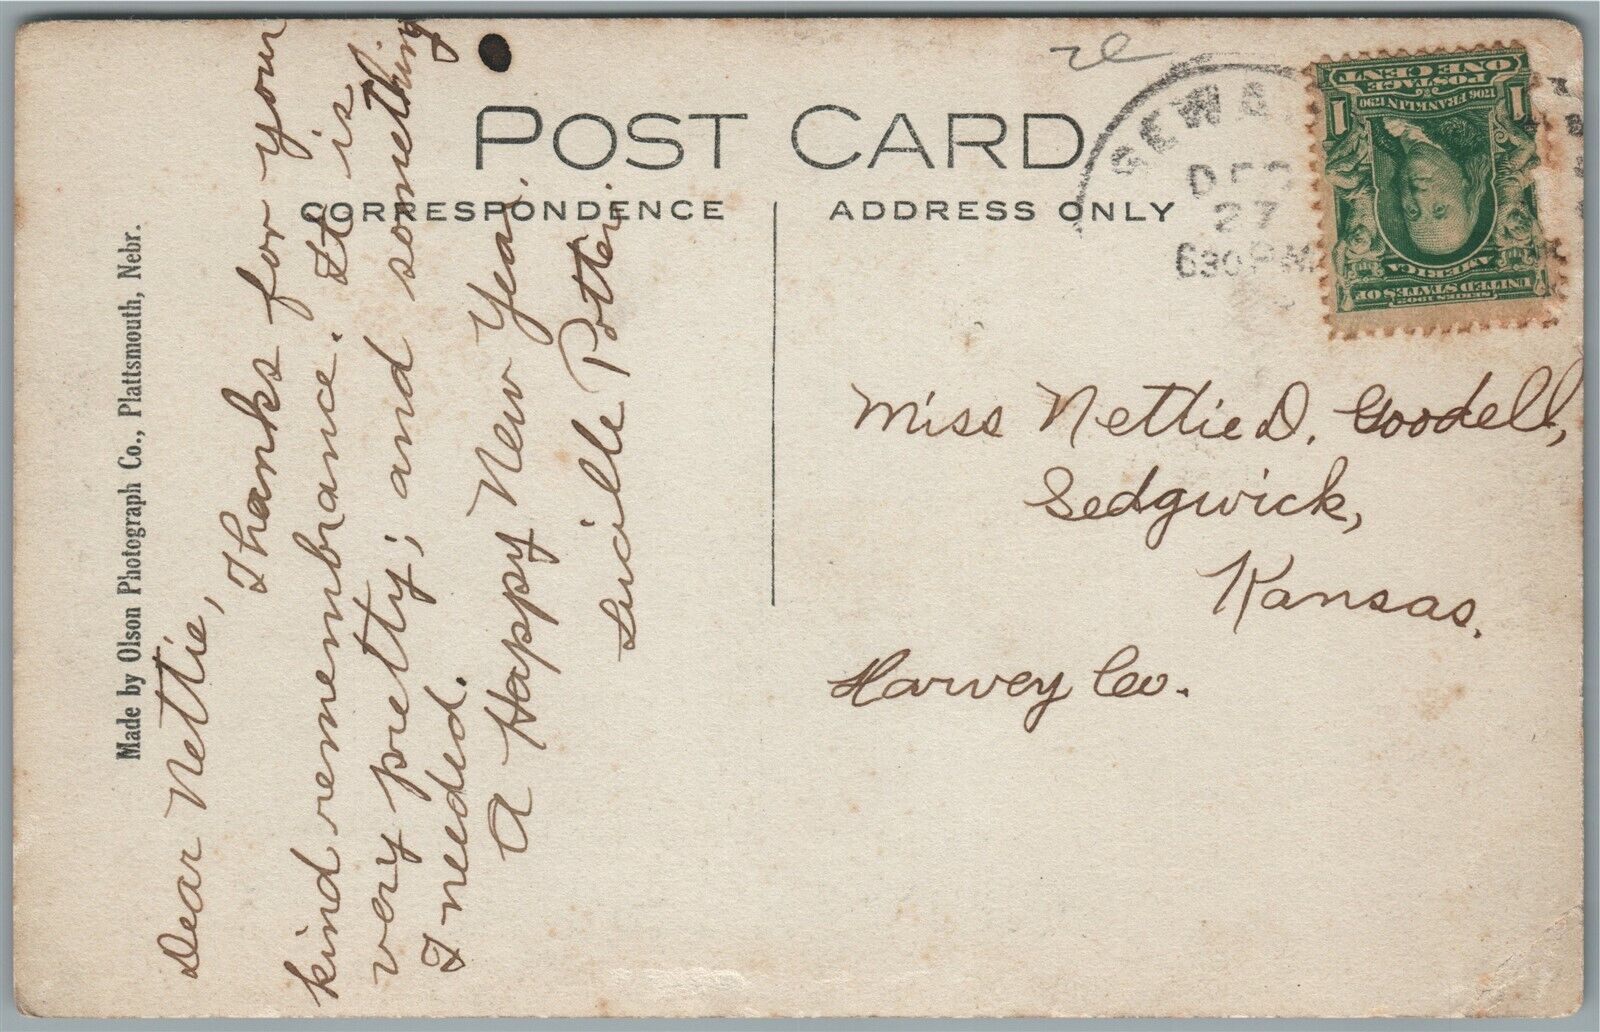 POST CARD
CORRESPONDENCE
ADDRESS ONLY
Made by Olson Photograph Co., Plattsmouth, Nebr.
Dear Nettie,
Thanks for your
kind remembrance. It is
very pretty; and something
I needed.
A Happy New Year,
Lucille Potter.
SEWA
DEC
27
630 PM
SERIES 1902
UNITED STATES OF
AMERICA
1706 FRANKLIN 1790
POSTAGE
1 ONE CENT 1
Miss Nettie D. Goodell,
Sedgwick,
Kansas.
Harvey Co.